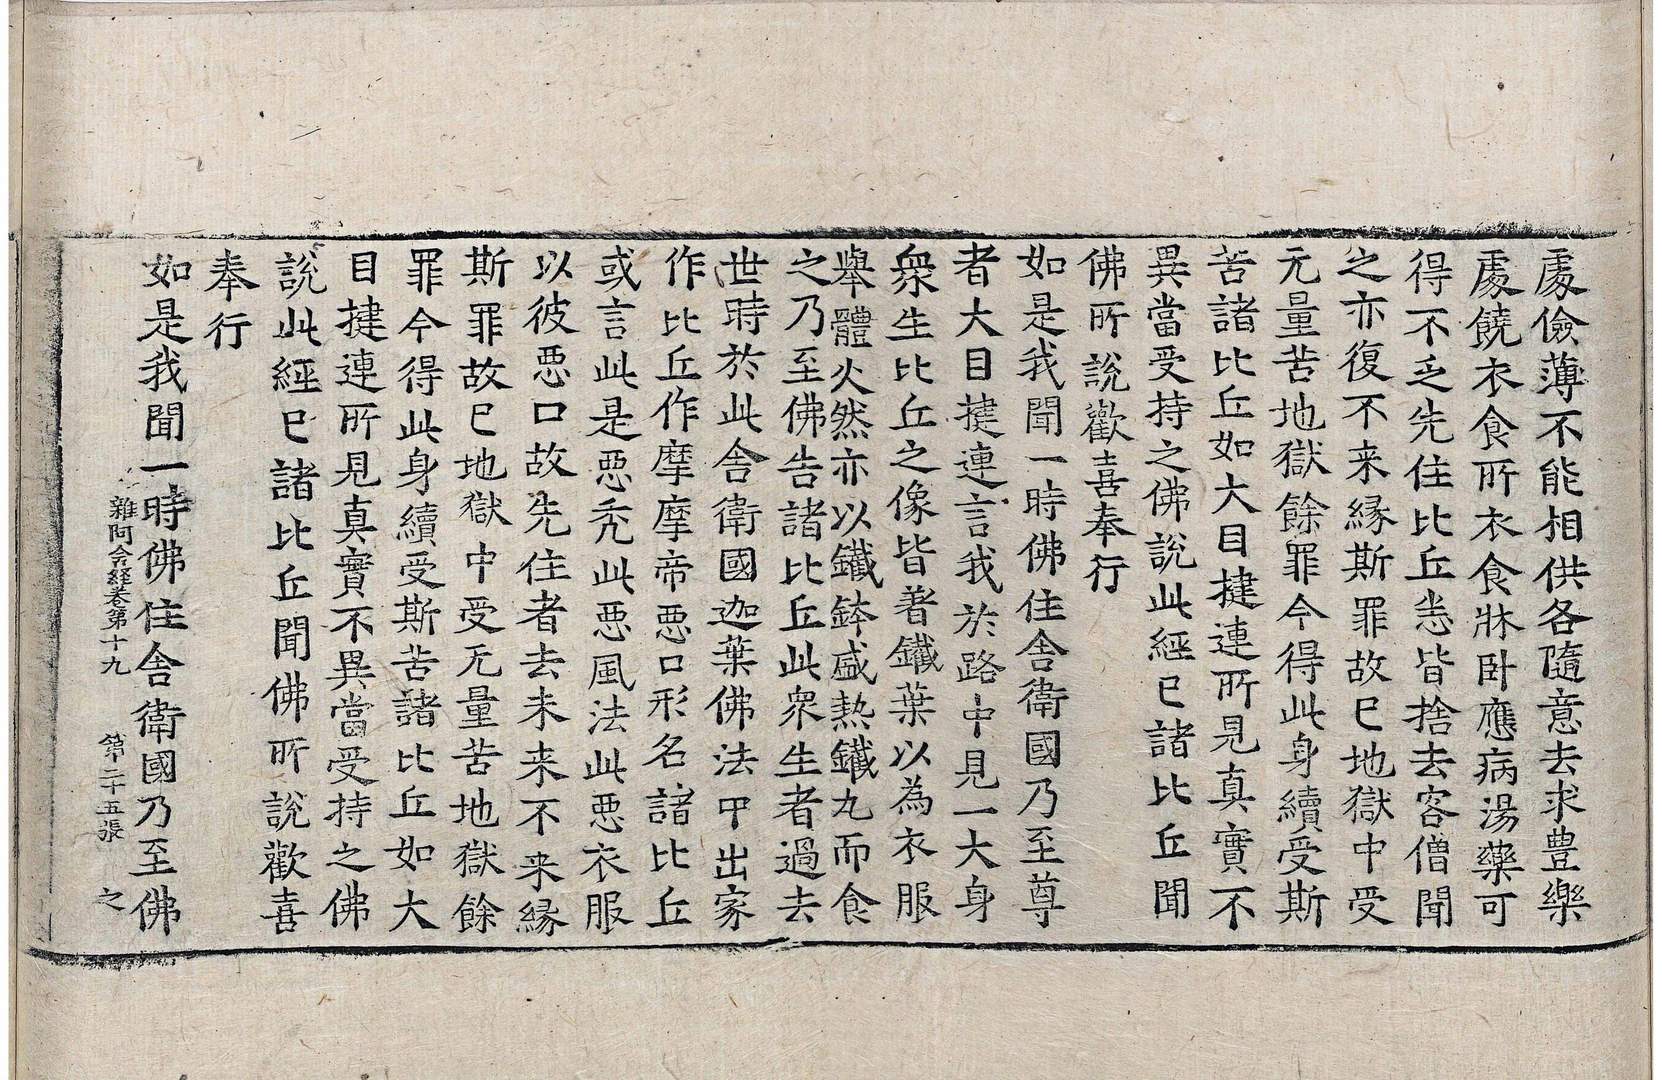 處儉薄不能相供各隨意去求豊樂
處饒衣食所衣食牀卧應病湯藥可
得不乏先住比丘悉皆捨去客僧聞
之亦復不来緣斯罪故已地獄中受
无量苦地獄餘罪今得此身續受斯
苦諸比丘如大目揵連所見真實不
異當受持之佛說此經已諸比丘聞
佛所說歡喜奉行
如是我聞一時佛住舍衛國乃至尊
者大目揵連言我於路中見一大身
衆生比丘之像皆著鐵葉以為衣服
舉體火然亦以鐵鉢盛熱鐵丸而食
之乃至佛告諸比丘此衆生者過去
世時於此舍衛國迦葉佛法中出家
作比丘作摩摩帝惡口形名諸比丘
或言此是惡禿此惡風法此惡衣服
以彼惡口故先住者去未来不来緣
斯罪故已地獄中受无量苦地獄餘
罪今得此身續受斯苦諸比丘如大
目揵連所見真實不異當受持之佛
說此經已諸比丘聞佛所說歡喜
奉行
如是我聞一時佛住舍衛國乃至佛
雜阿含経卷第十九 第二十五張 之